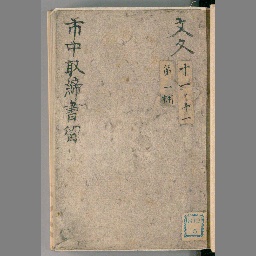 文久
十一ノ十一
第一冊
市中取締書留